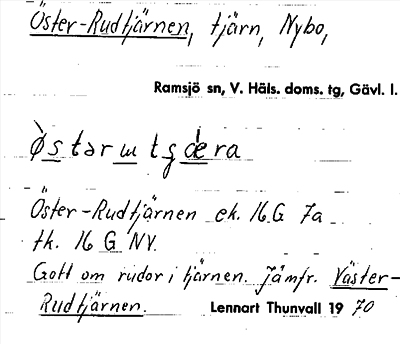 Öster-Rudtjärnen, tjärn, Nybo,
Ramsjö sn, V. Häls. doms. tg, Gävl. l.
Öster-Rudtjärnen ek. 16 G 7a
tk. 16 G NV.
Gott om rudor i tjärnen. Jämfr. Väster-
Rudtjärnen. Lennart Thunvall 19 70